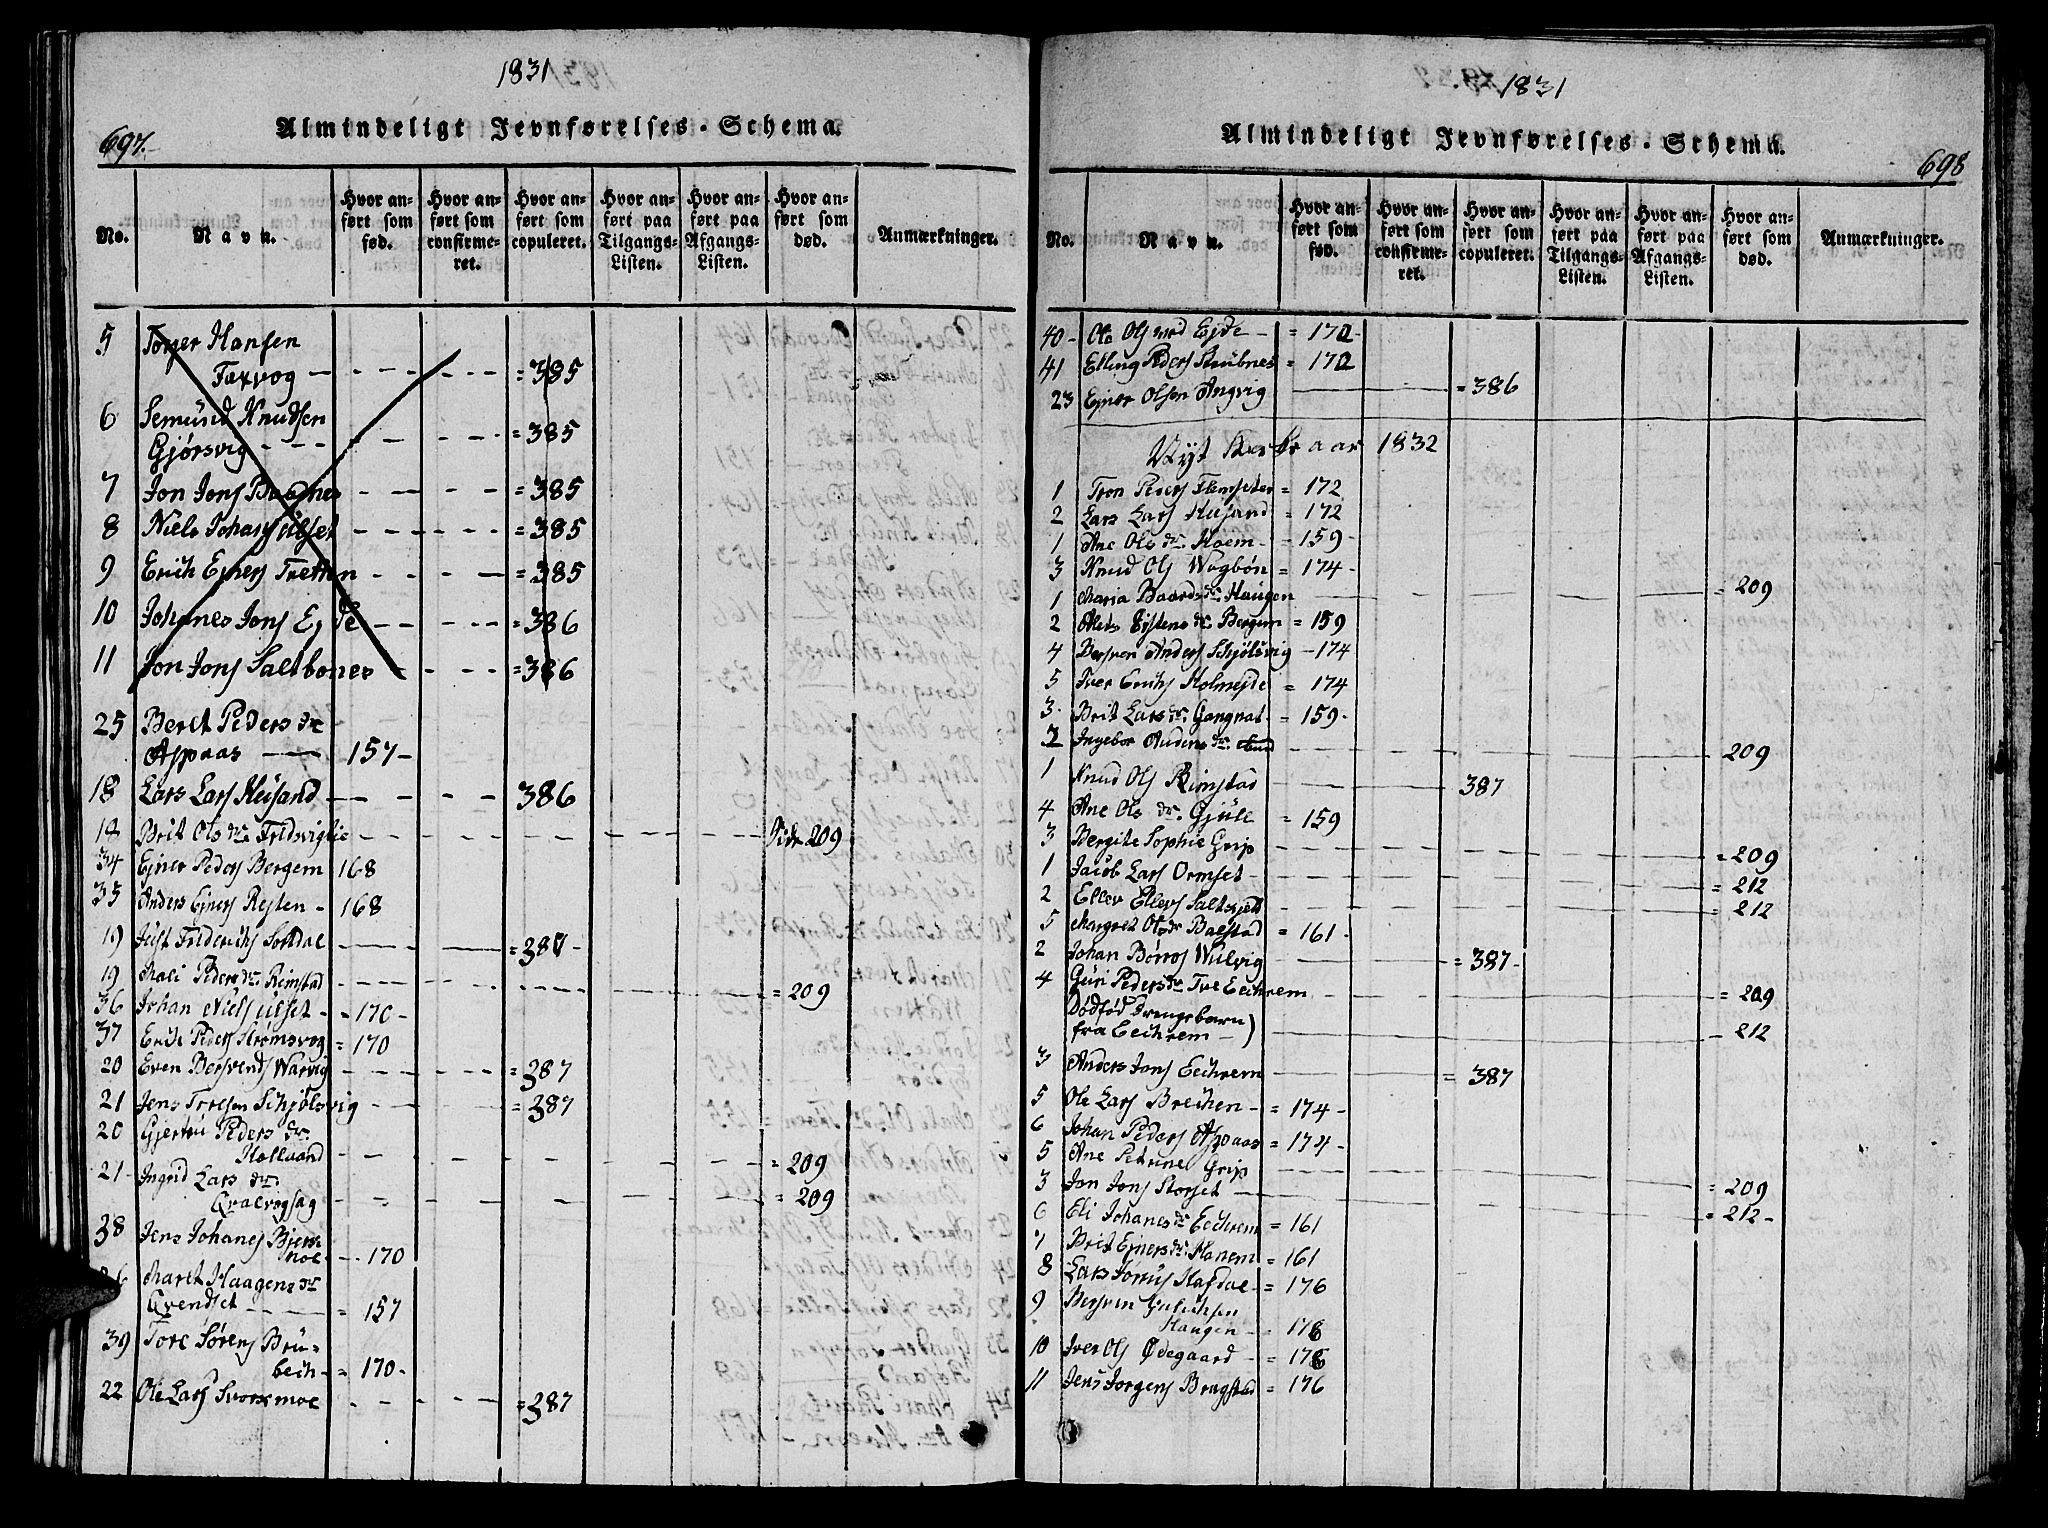 1831
Almindeligt Jevnførelses-Schema.
697.
No. Navn. Hvor anført som fød. Hvor anført som confirmeret. Hvor anført som copuleret. Hvor anført paa Tilgangs-Listen. Hvor anført paa Afgangs-Listen. Hvor anført som død. Anmærkninger.
5 Torger Hansen
Faxvog = 385
6 Semund Knudsen
Gjørsvig = 385
7 Jon Jons = 385
8 Niels Johans Ulset = 385
9 Erich Ejners Tretten = 385
10 Johanes Jons Ejde = 386
11 Jon Jons Saltbones = 386
25 Beret Peders dr
Aspaas 157
18 Lars Lars Husand 386
18 Brit Ols dr. Fredsviglie Side 209
34 Ejner Peders Bergem 168
35 Anders Ejners Rejten 168
19 Just Frederichs Soldal = 387
19 Mali Peders dr. Rimstad = 209
36 Johan Niels Ulset = 170
37 Erich Peders Strømsvog = 170
20 Even Bersvends Warvig = 387
21 Jens Tresen Schjølsvig = 387
20 Gjertru Peders dr.
Hollvand = 209
21 Ingrid Lars dr.
= 209
38 Jens Johanes
moe 170
Marit Haagens dr
Qvendset = 157
39 Tore Sørens Brü-
bech = 170
22 Ole Lars Svorsmoe = 387
1831
Almindeligt Jevnførelses-Schema.
698
No. Navn. Hvor anført som fød. Hvor anført som confirmeret. Hvor anført som copuleret. Hvor anført paa Tilgangs-Listen. Hvor anført paa Afgangs-Listen. Hvor anført som død. Anmærkninger.
40 Ole Ols Ejde = 172
41 Elling Peders Stubnes = 172
23 Ejner Olsen Angvig = 386
Nyt Kirkeaar 1832
1 Tron Peders Flemseter = 172
2 Lars Lars Husand = 172
1 Ane Ols dr. Hoem = 159
3 Knud Ols Wogbøn = 174
1 Maria Baards dr. Haugen = 209
2 Alets Ejstens dr. Bergem = 159
4 Bersven Anders Schjølsvig 174
5 Iver Erichs Holmejde = 174
3 Brit Lars dr. Gangnat = 159
2 Ingebor Anders dr. 209
1 Knud Ols Rimstad 387
4 Ane Ols dr. Gjüle = 159
3 Bergite Sophie Grip = 209
1 Jacob Lars Ormset = 212
2 Ellev Ellevs = 212
5 Margret Ols dr Balstad = 161
2 Johan Børros Wulvig = 387
4 Guri Peders dr Eechrem = 209
Dødfød Drengebarn
fra Eechrem 212
3 Anders Jons Eechrem = 387
5 Ole Lars Brechen = 174
6 Johan Peders Aspaas = 174
5 Ane Petrine Grip = 209
3 Jon Jons Storset = 212
6 Eli Johanes dr Eechrem = 161
7 Brit Ejners dr. Hanem = 161
8 Lars Hafdal = 176
9 Bersven
Haugen = 176
10 Iver Ols Ødegaard = 176
11 Jens Jørgens Brugstad = 176